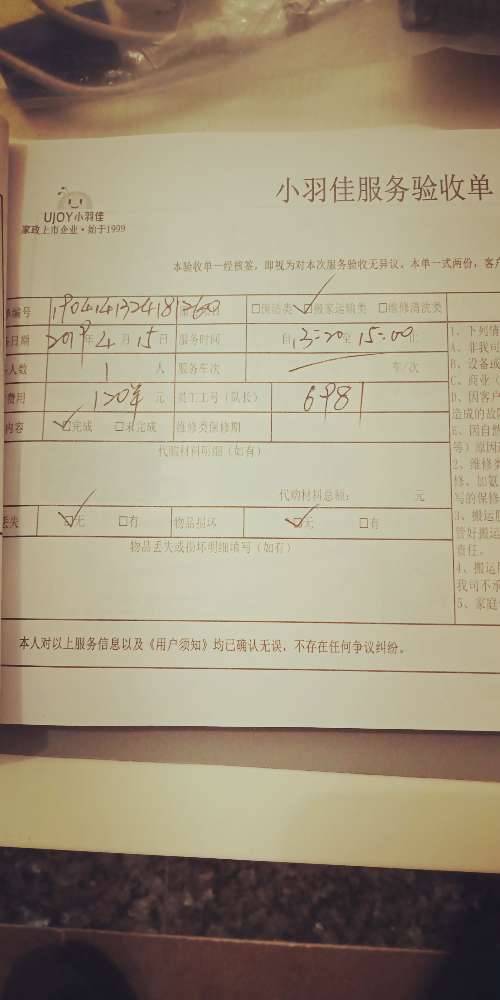 小羽佳服务验收单
UJOY小羽佳
家政上市企业·始于1999
本验收单一经核签,即视为对本次服务验收无异议,本单一式两份,客户
单编号 1904141324181260 □保洁类 ☑搬家运输类 □维修清洗类
日期 2019年4月15日 服务时间 自13:20至15:00止
人数 1 人 服务车次 车/次
费用 120半 元 员工工号(队长) 6981
内容 ☑完成 □未完成 维修类保修期
代购材料明细(如有)
代购材料总额: 元
丢失 ☑无 □有 物品损坏 ☑无 □有
物品丢失或损坏明细填写(如有)
1、下列情
A、非我司
B、设备或
C、商业(
D、因客户
造成的故障
E、因自然
等)原因造
2、维修类
修、加氨
写的保修
3、搬运服
管好搬运
责任。
4、搬运服
我司不承
5、家庭
本人对以上服务信息以及《用户须知》均已确认无误,不存在任何争议纠纷。